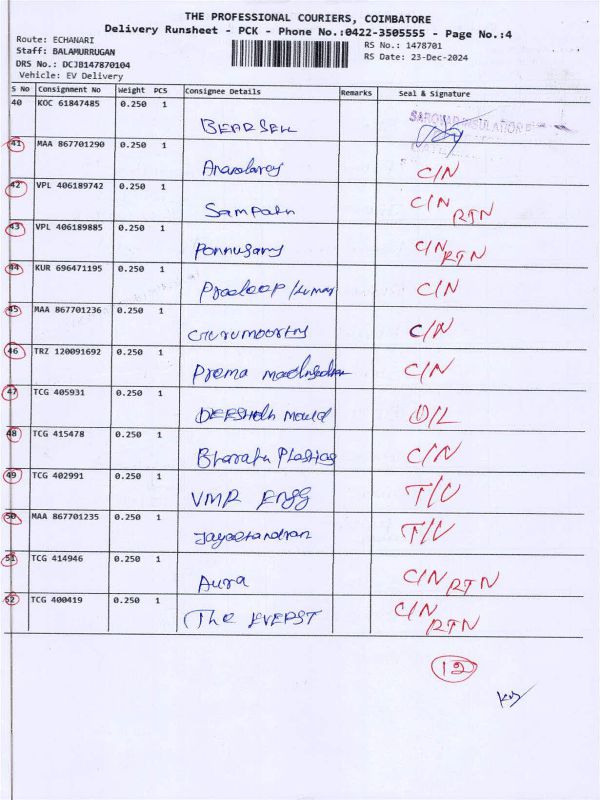 THE PROFESSIONAL COURIERS, COIMBATORE
Delivery Runsheet - PCK - Phone No.:0422-3505555 - Page No.:4
Route: ECHANARI
RS No.: 1478701
Staff: BALAMURRUGAN
RS Date: 23-Dec-2024
DRS No.: DCJB147870104
Vehicle: EV Delivery
S No Consignment No Weight PCS Consignee Details Remarks Seal & Signature
40 KOC 61847485 0.250 1 BEARSELL
41 MAA 867701290 0.250 1 C/N
42 VPL 406189742 0.250 1 Sampath C/N RTN
43 VPL 406189885 0.250 1 Ponnusamy C/N RTN
44 KUR 696471195 0.250 1 Pradeep Kumar C/N
45 MAA 867701236 0.250 1 Gurumoorthy C/N
46 TRZ 120091692 0.250 1 Prema C/N
47 TCG 405931 0.250 1 Mould D/L
48 TCG 415478 0.250 1 Bharath Plastics C/N
49 TCG 402991 0.250 1 VMR ENGG T/U
50 MAA 867701235 0.250 1 Jayachandran T/U
51 TCG 414946 0.250 1 Aura C/N RTN
52 TCG 400419 0.250 1 The EVERST C/N RTN
12